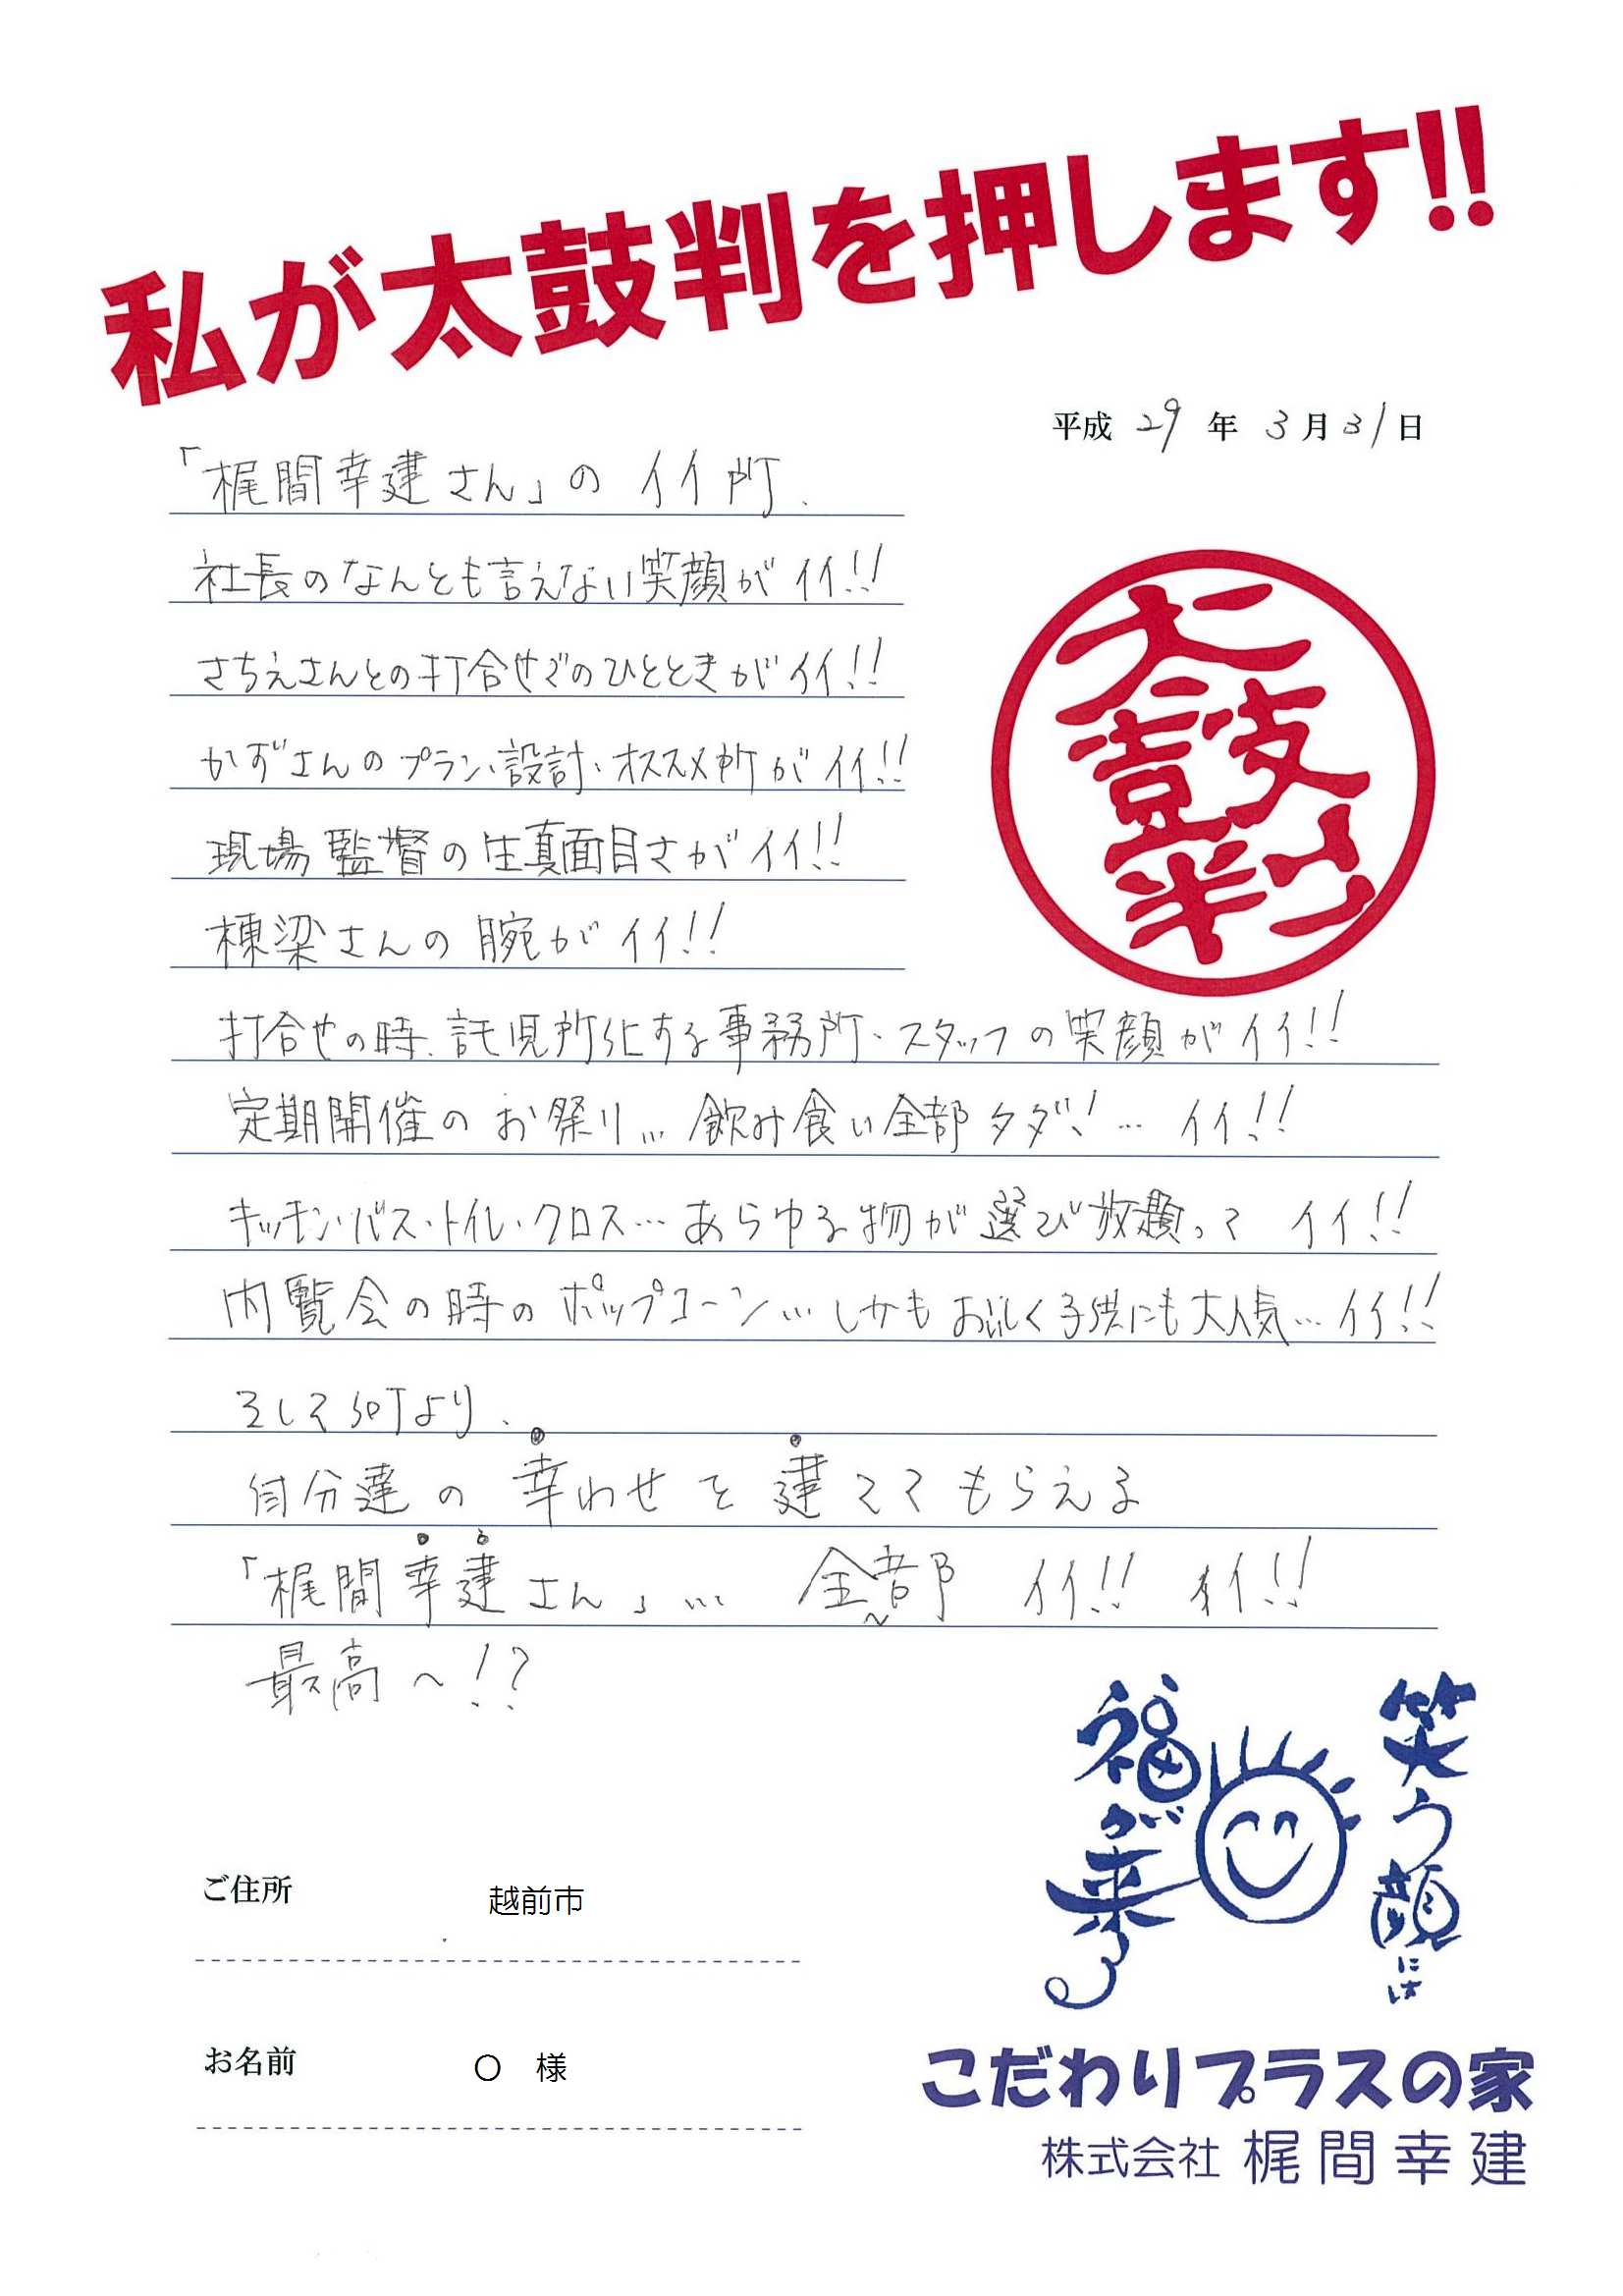 私が太鼓判を押します!!
平成 29 年 3 月 31 日
「梶間幸建さん」の イイ所、
社長のなんとも言えない笑顔が イイ!!
さちえさんとの打合せでのひとときが イイ!!
かずさんの プラン・設計・オススメ所が イイ!!
現場監督の生真面目さが イイ!!
棟梁さんの 腕が イイ!!
打合せの時、託児所化する事務所・スタッフの笑顔が イイ!!
定期開催の お祭り… 飲み食い全部 タダ!… イイ!!
キッチン・バス・トイレ・クロス… あらゆる物が 選び放題って イイ!!
内覧会の時の ポップコーン… しかも おいしく 子供にも 大人気… イイ!!
そして何より、
自分達の 幸わせを 建ててもらえる
「梶間幸建さん」… 全~部 イイ!! イイ!!
最高~!?
太鼓判
笑う顔には
福が来る
ご住所 越前市
お名前 〇 様
こだわりプラスの家
株式会社 梶間幸建